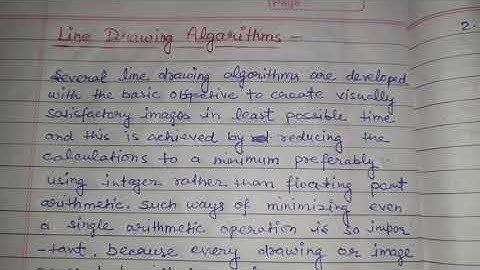 Page
2.
Line Drawing Algorithms -
Several line drawing algorithms are developed
with the basic objective to create visually
satisfactory images in least possible time
and this is achieved by reducing the
calculations to a minimum preferably
using integer rather than floating point
arithmetic. Such ways of minimizing even
a single arithmetic operation is so impor
-tant, because every drawing or image